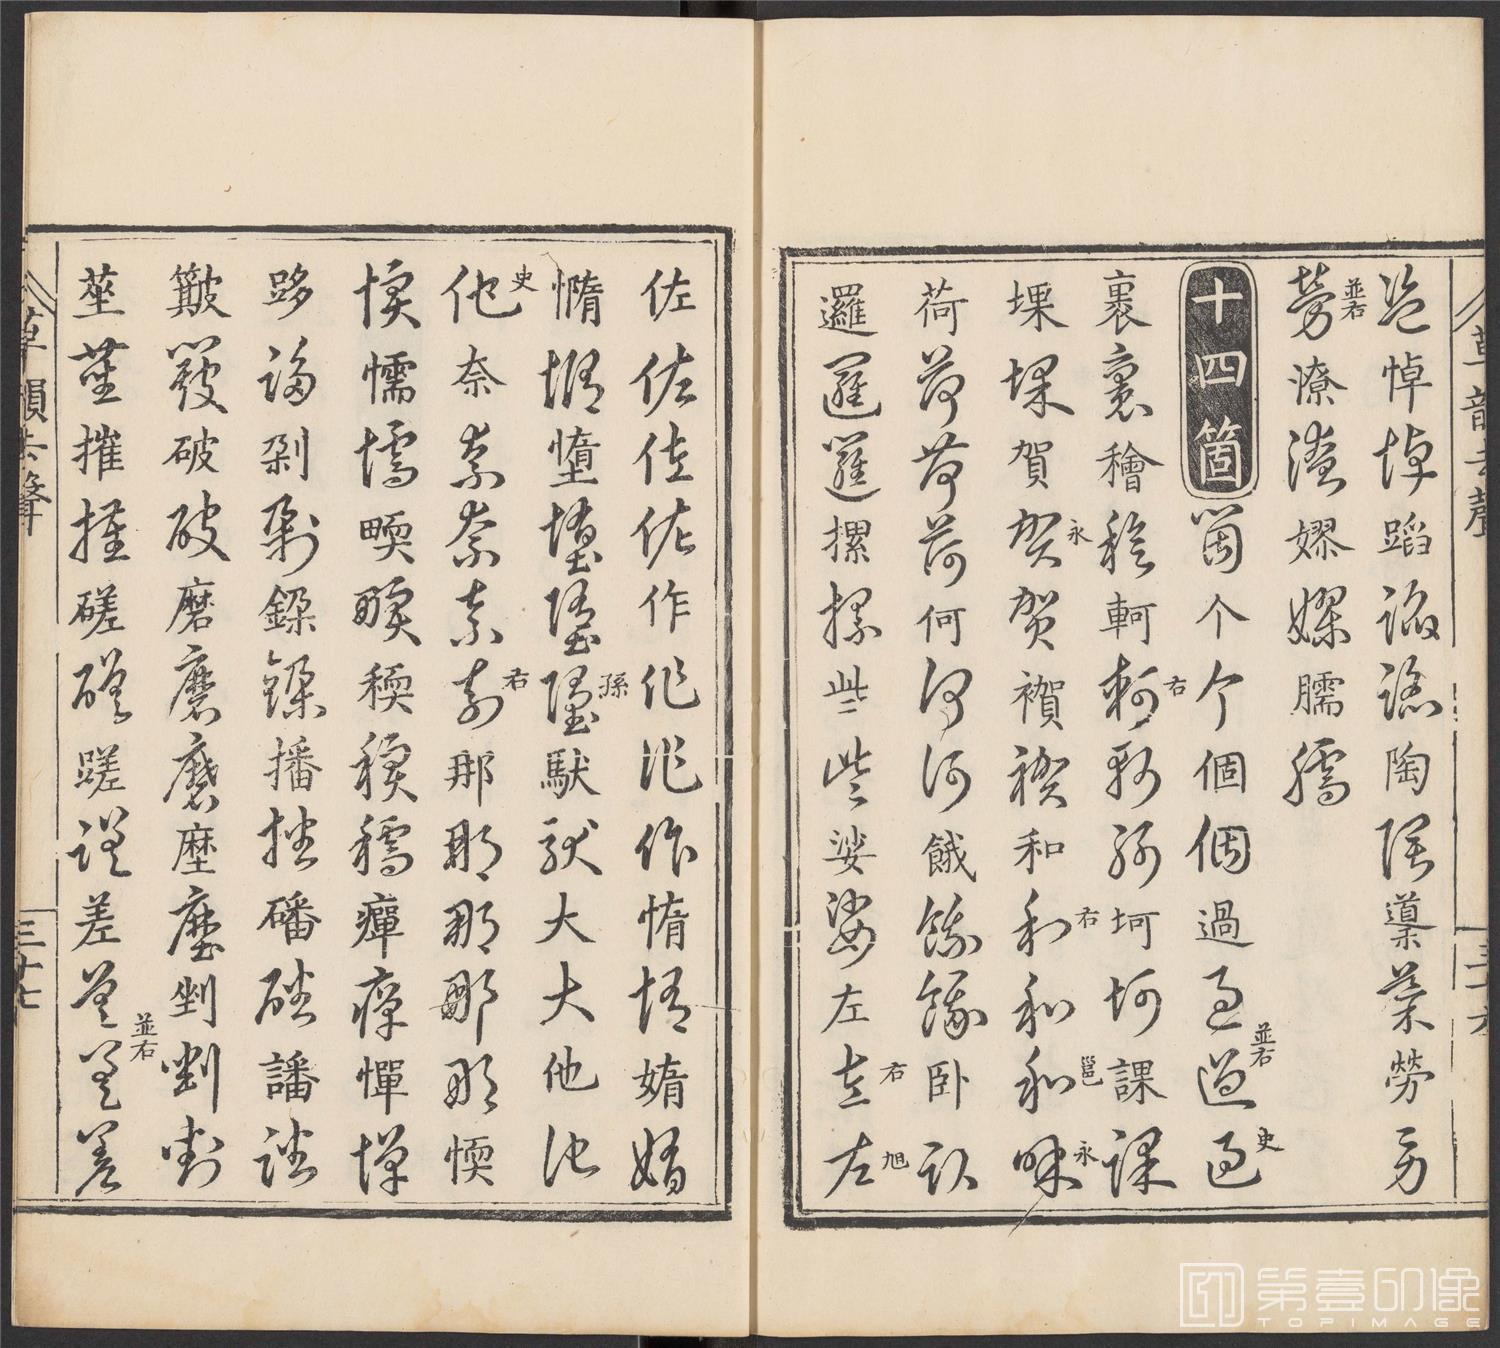 草韻去聲 三十六
盜悼悼蹈蹈蹈陶陶䆃䆃勞勞
勞並右嫪嫪臑臑
十四箇箇个个個個過過過並右過史
裹裹軻軻右軻軻坷坷課課
堁堁賀賀永賀和和右和和邕咊永
荷荷荷荷何何何餓餓餓臥臥
邏邏邏摞摞些些娑娑左左右左旭
佐佐佐佐作作作作惰惰媠媠
憜憜孫馱馱大大他他
他史奈奈奈奈奈右那那那那愞
愞懦懦稬稬稬癉癉憚憚
跢跢剁剁播播磻磻譒譒
簸簸破破磨磨磨塺塺剉剉剉
莝莝摧摧磋磋蹉蹉差差差並右差
草韻去聲 三十七
第壹印像
TOPIMAGE